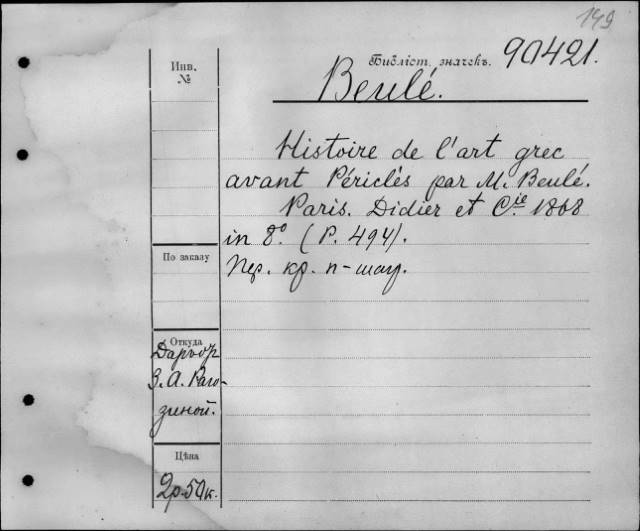 149
Библіот. значекъ. 90421.
Инв.
№
Beulé.
Histoire de l'art grec
avant Périclès par M. Beulé.
Paris. Didier et Cie 1868
in 8º. (P. 494).
По заказу
Пер. кр. п-шагр.
Откуда
Даръ отъ
З. А. Раго-
зиной.
Цѣна
2р. 50к.